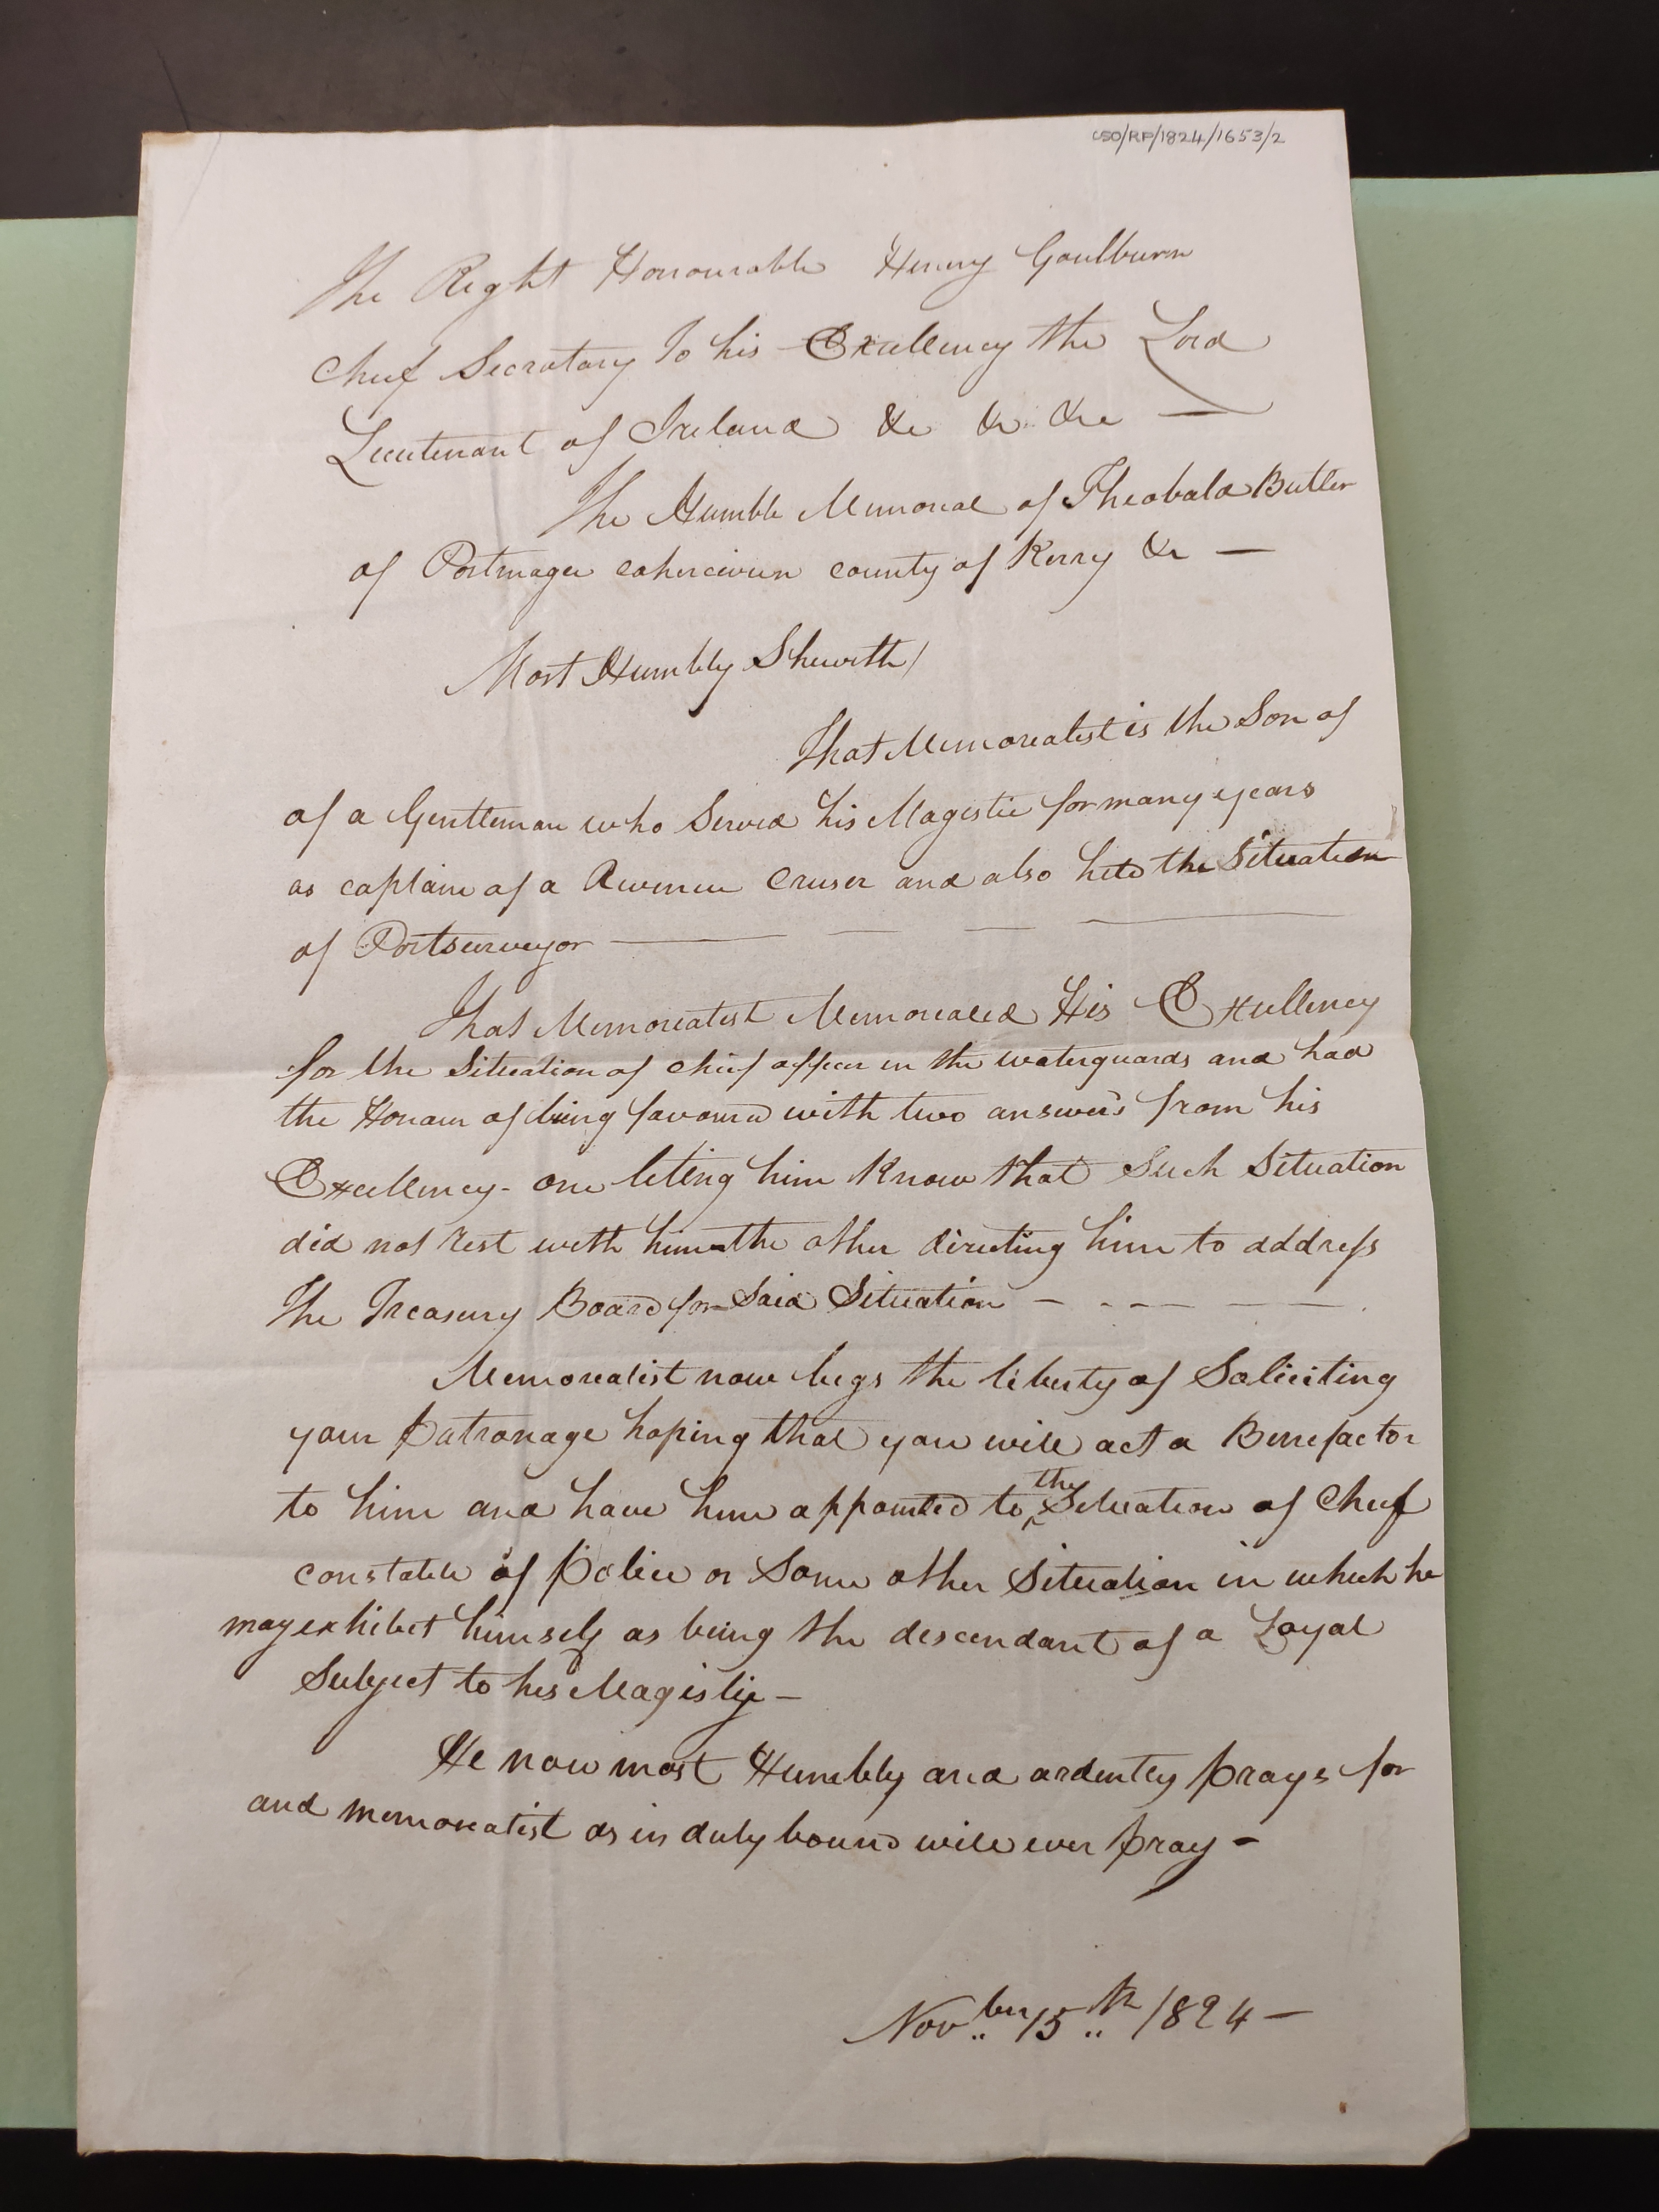 CSO/RP/1824/1653/2
The Right Honourable Henry Goulburn
Chief Secratary To his Excellency the Lord
Lieutenant of Ireland &c &c &c —
The Humble Memorial of Theobald Butler
of Portmagee caherciveen county of Kerry &c —
Most Humbly Shewith/
That Memorealist is the Son of
of a Gentleman who Served his Magestie for many years
as captain of a Revenue Cruser and also held the Situation
of Portsurveyor — — — —
That Memorealist Memorealed His Excellency
for the Situation of chief officer in the waterguards and had
the Honour of being favoured with two answers from his
Excellency - one leting him Know that Such Situation
did not rest with him - the other directing him to address
The Treasury Board for Said Situation — - - — — —
Memorealist now begs the liberty of Soliciting
your Patronage hoping that you will act a Benefactor
to him and have him appointed to the Situation of Chief
constable of Police or Some other Situation in which he
may exhibit himself as being the descendant of a Loyal
Subject to his Magistie —
He now most Humbly and ardently prays for
and memorealist as in duty bound will ever pray -
Novber 15th 1824 —